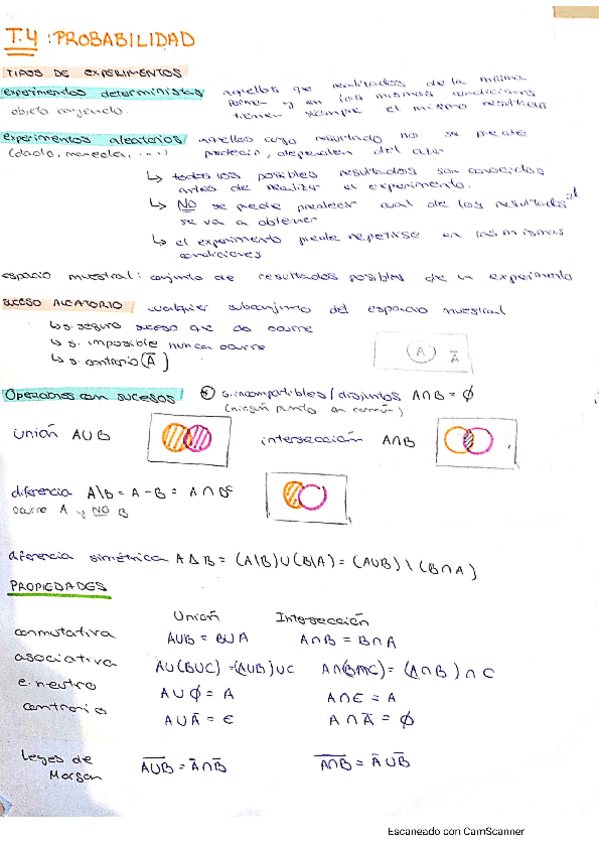 T.4: PROBABILIDAD
TIPOS DE EXPERIMENTOS
experimentos deterministas aquellos que realizados de la misma
forma y en las mismas condiciones
objeto cayendo. tienen siempre el mismo resultado
experimentos aleatorios aquellos cuyo resultado no se puede
(dado, moneda, ...) predecir, dependen del azar
↳ todos los posibles resultados son conocidos
antes de realizar el experimento.
↳ NO se puede predecir cual de los resultados
se va a obtener
↳ el experimento puede repetirse en las mismas
condiciones
espacio muestral: conjunto de resultados posibles de un experimento
SUCESO ALEATORIO cualquier subconjunto del espacio muestral
↳ s. seguro suceso que da ocurre
↳ s. imposible nunca ocurre
↳ s. contrario (A̅)
A A̅
Operaciones con sucesos s. incompatibles / disjuntos A∩B = ∅
(ningún punto en común)
unión A∪B intersección A∩B
diferencia A\B = A - B = A ∩ Bᶜ
ocurre A y NO B
diferencia simétrica A Δ B = (A\B)∪(B\A) = (A∪B) \ (B∩A)
PROPIEDADES
Unión Intersección
conmutativa A∪B = B∪A A∩B = B∩A
asociativa A∪(B∪C) = (A∪B)∪C A∩(B∩C) = (A∩B)∩C
e. neutro A∪∅ = A A∩E = A
contrario A∪A̅ = E A∩A̅ = ∅
leyes de A̅∪̅B̅ = A̅∩B̅ A̅∩̅B̅ = A̅∪B̅
Morgan
Escaneado con CamScanner